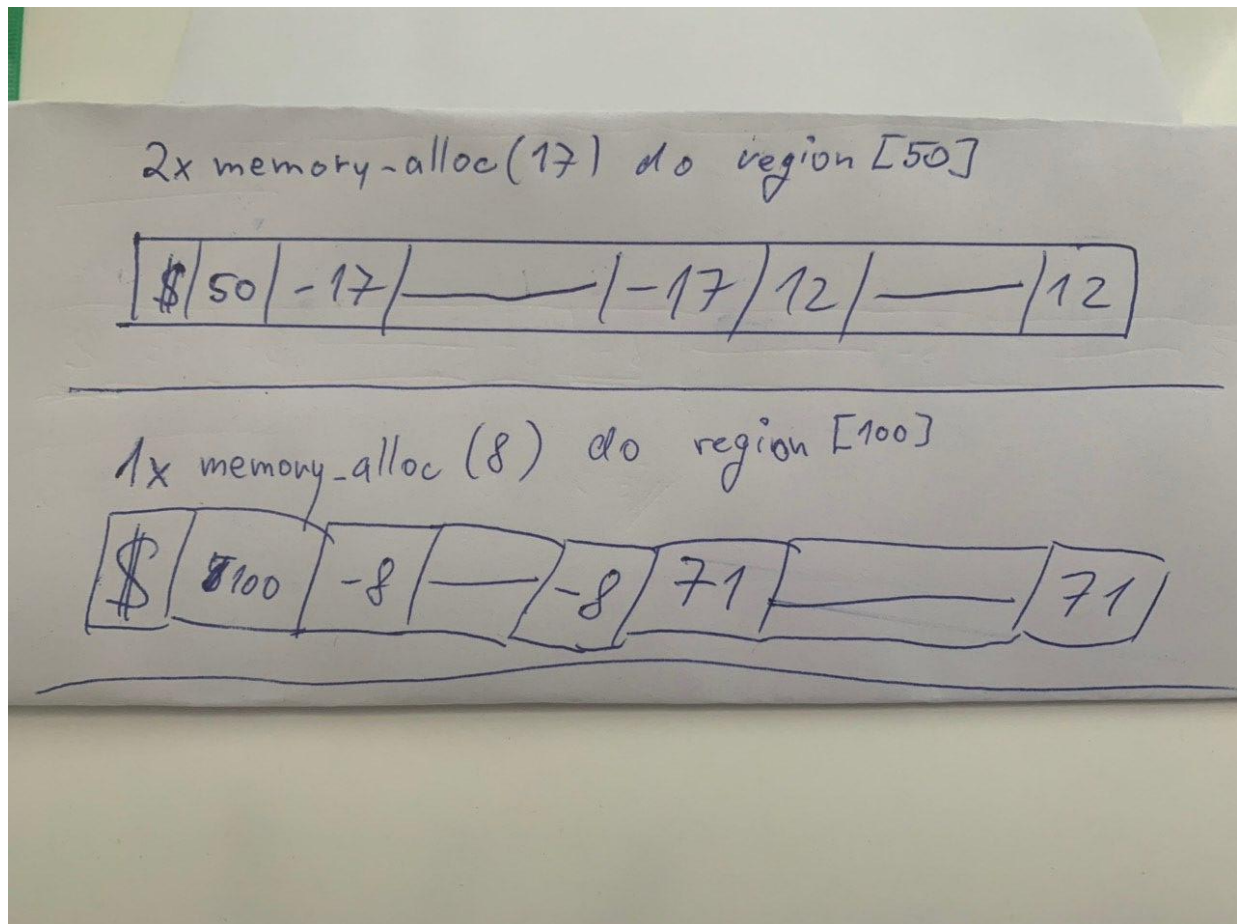 2x memory-alloc(17) do region [50]
$ 50 -17 -17 12 12
1x memory_alloc (8) do region [100]
$ 100 -8 -8 71 71